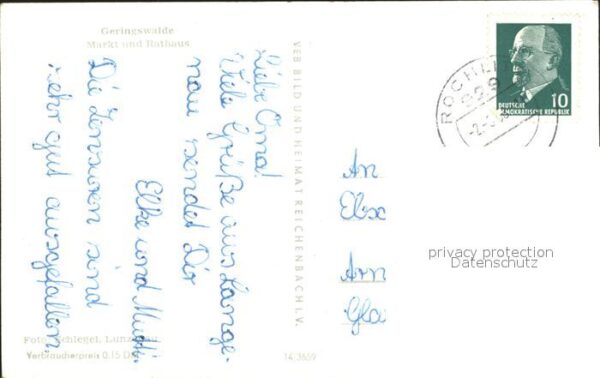 Geringswalde
Markt und Rathaus
Liebe Oma!
Viele Grüße aus Lange-
nau sendet Dir
Elke und Mutti.
Die Zensuren sind
sehr gut ausgefallen.
Foto: Schlegel, Lunzenau
Verbraucherpreis 0,15 DM
VEB BILD UND HEIMAT REICHENBACH I. V.
14/3659
ROCHLI
929
DEUTSCHE
DEMOKRATISCHE REPUBLIK
10
An
Arn
Gla
privacy protection
Datenschutz